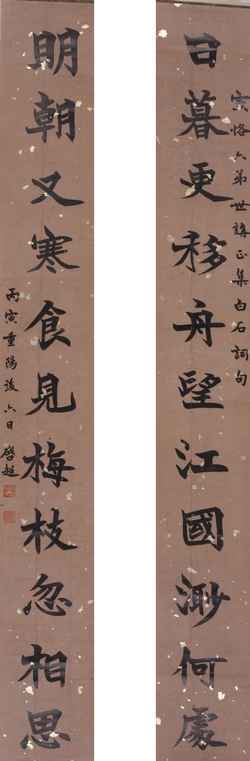 寅恪六弟世講正集白石詞句
日暮更移舟望江國渺何處
明朝又寒食見梅枝忽相思
丙寅重陽後六日 啓超